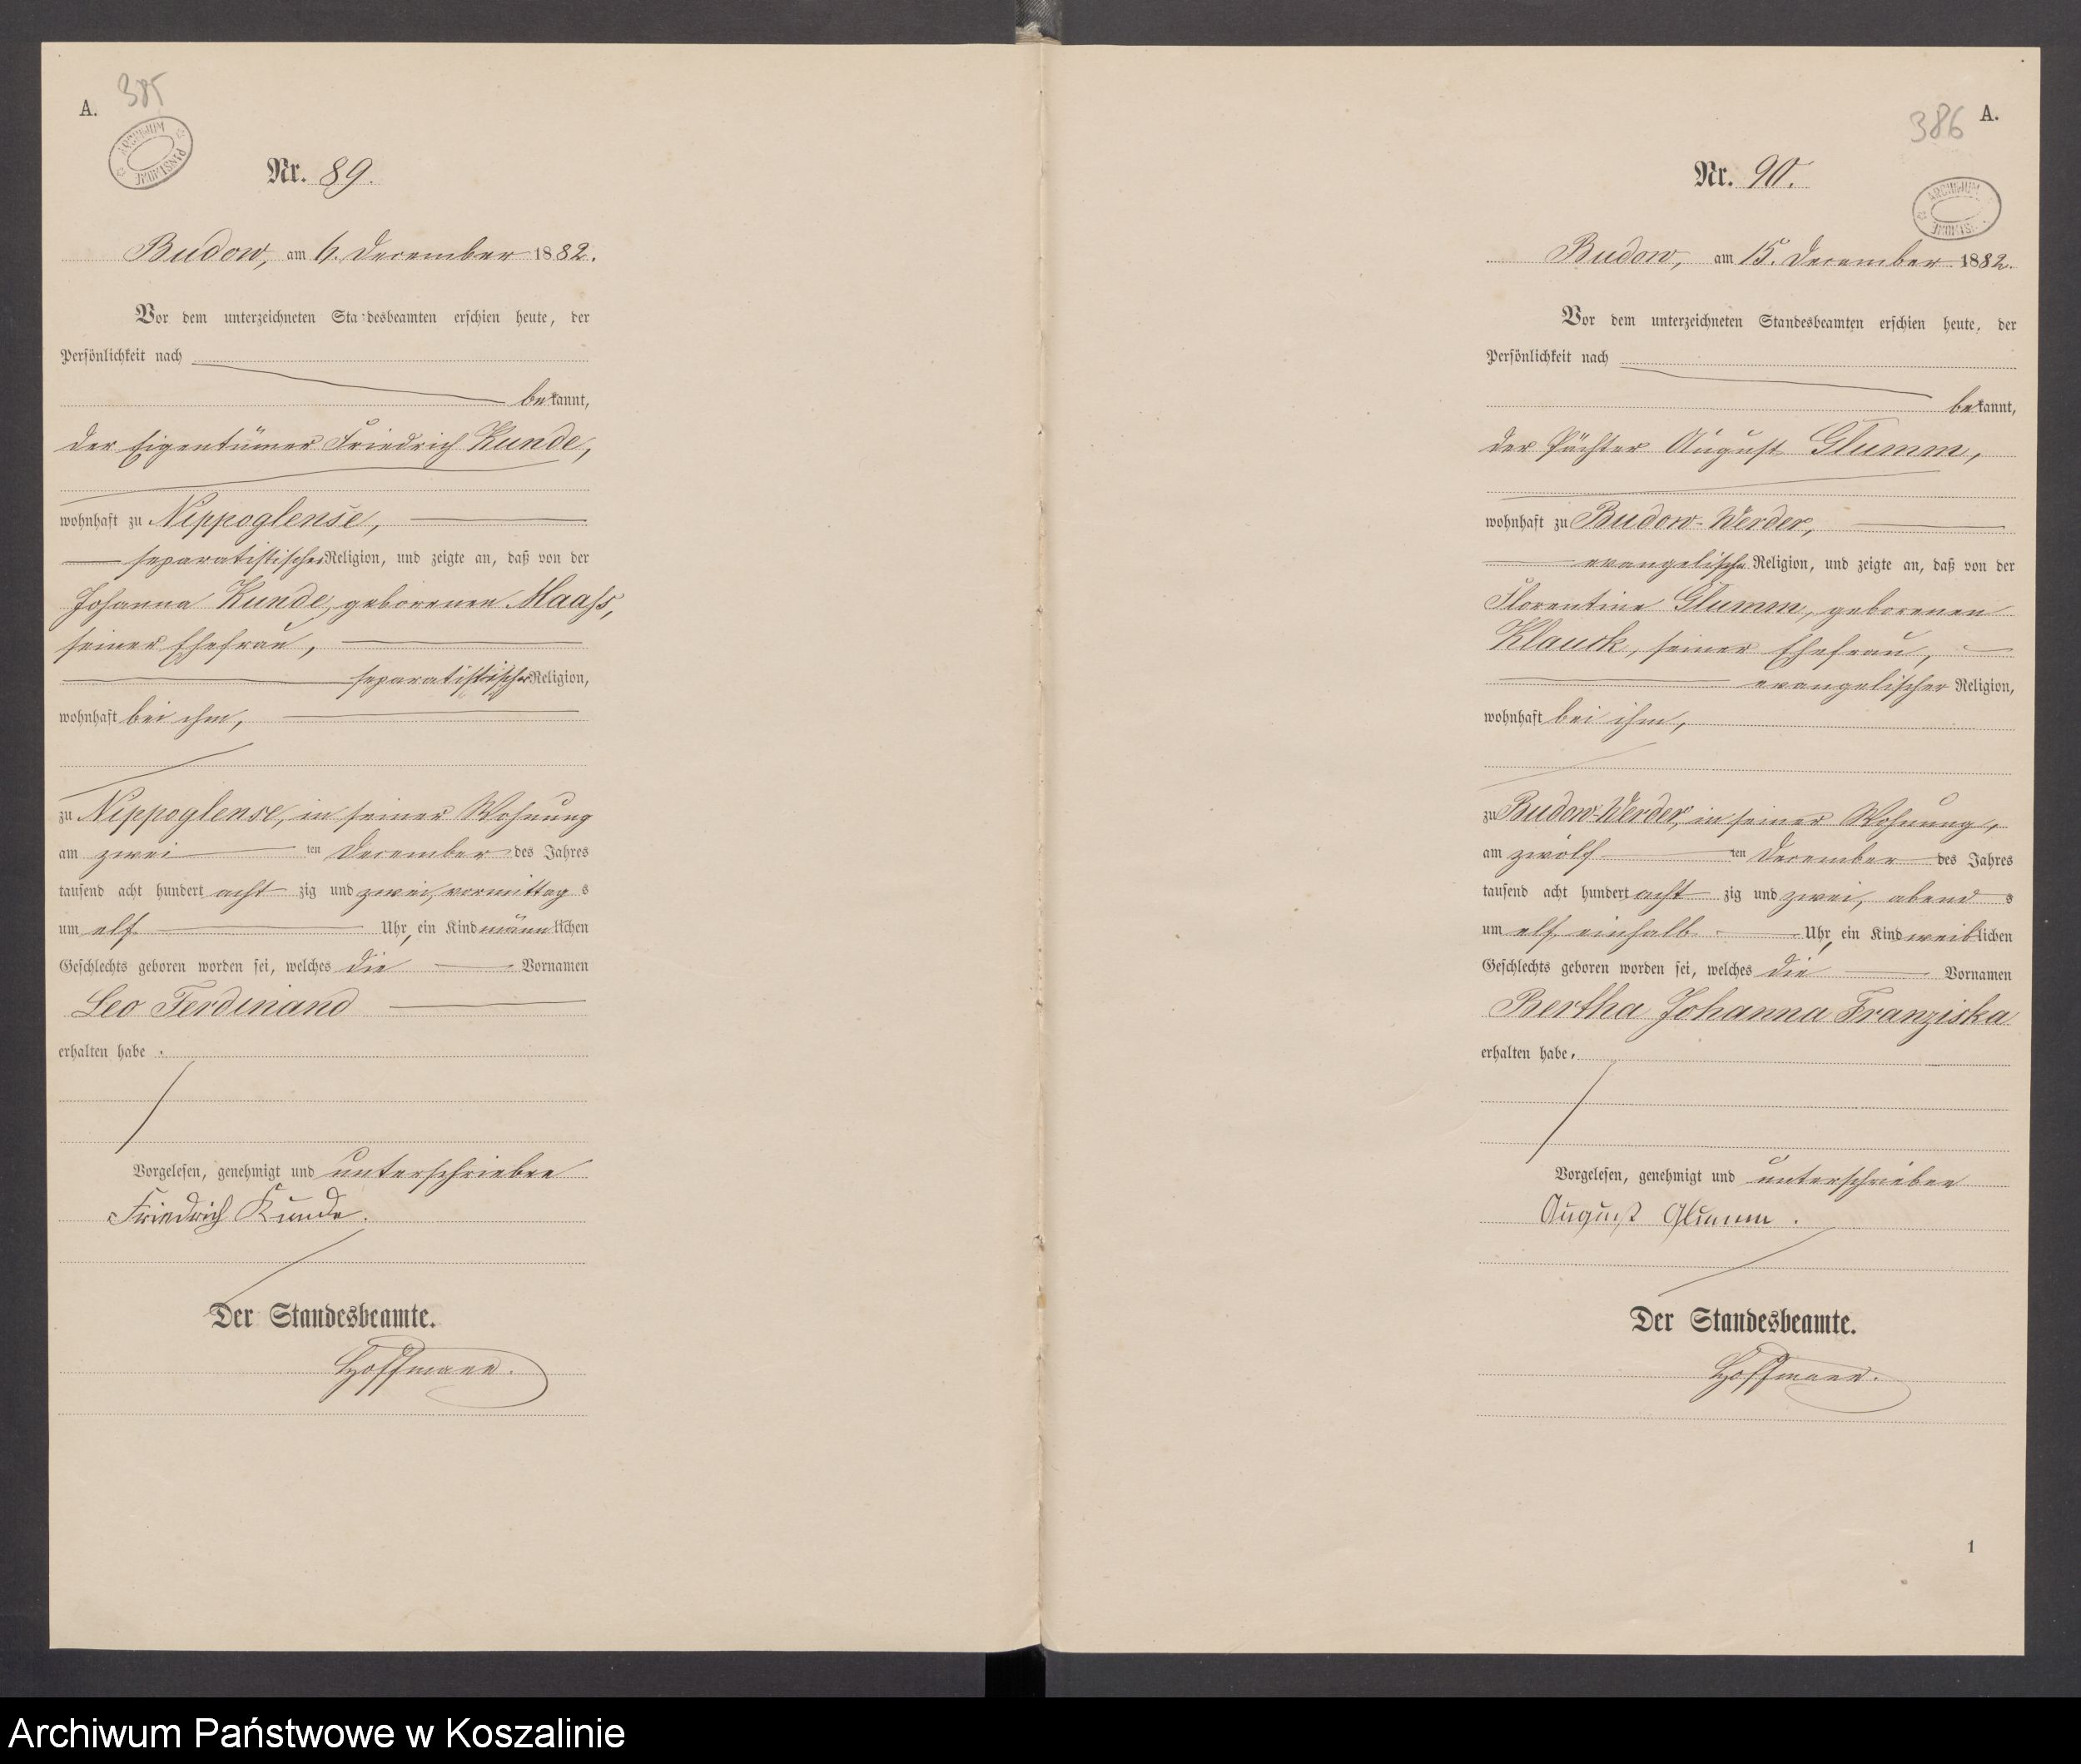 A.
385
ARCHIWUM PAŃSTWOWE
Nr. 89.
Budow, am 6. December 1882.
Vor dem unterzeichneten Standesbeamten erschien heute, der
Persönlichkeit nach
bekannt,
der Eigentümer Friedrich Kunde,
wohnhaft zu Nippoglense,
separatistischer Religion, und zeigte an, daß von der
Johanna Kunde, geborenen Maaß,
seiner Ehefrau,
separatistischer Religion,
wohnhaft bei ihm,
zu Nippoglense, in seiner Wohnung
am zwei ten December des Jahres
tausend acht hundert acht zig und zwei, vormittag s
um elf Uhr, ein Kind männlichen
Geschlechts geboren worden sei, welches die Vornamen
Leo Ferdinand
erhalten habe.
Vorgelesen, genehmigt und unterschrieben
Friedrich Kunde.
Der Standesbeamte.
Hoffmann.
386 A.
Nr. 90.
ARCHIWUM PAŃSTWOWE
Budow, am 15. December 1882.
Vor dem unterzeichneten Standesbeamten erschien heute, der
Persönlichkeit nach
bekannt,
der Pächter August Glumm,
wohnhaft zu Budow-Werder,
evangelischer Religion, und zeigte an, daß von der
Florentine Glumm, geborenen
Klauck, seiner Ehefrau,
evangelischer Religion,
wohnhaft bei ihm,
zu Budow-Werder, in seiner Wohnung,
am zwölf ten December des Jahres
tausend acht hundert acht zig und zwei, abend s
um elf einhalb Uhr, ein Kind weiblichen
Geschlechts geboren worden sei, welches die Vornamen
Bertha Johanna Franziska
erhalten habe.
Vorgelesen, genehmigt und unterschrieben
August Glumm.
Der Standesbeamte.
Hoffmann.
1
Archiwum Państwowe w Koszalinie